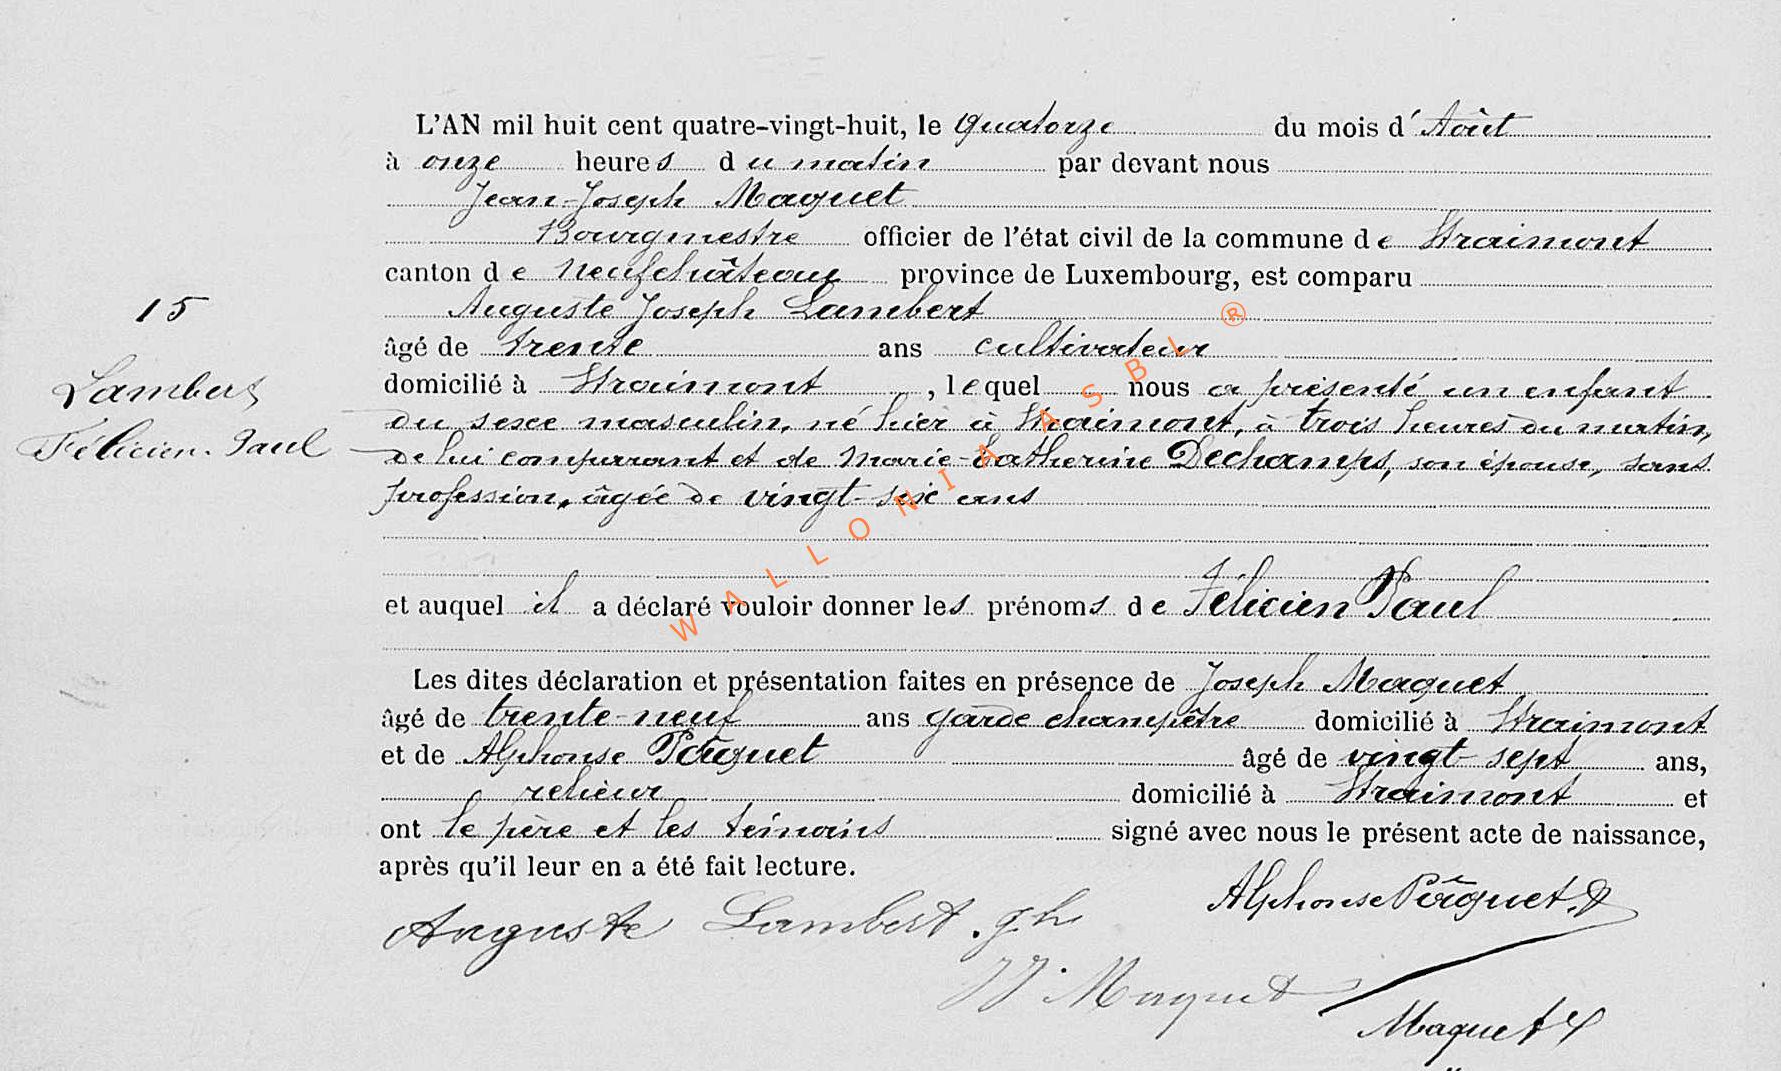 L'AN mil huit cent quatre-vingt-huit, le Quatorze du mois d'Août
à onze heures du matin par devant nous
Jean-Joseph Maquet
Bourgmestre officier de l'état civil de la commune de Straimont
canton de Neufchâteau province de Luxembourg, est comparu
Auguste Joseph Lambert
âgé de trente ans cultivateur
domicilié à Straimont, lequel nous a présenté un enfant
du sexe masculin, né hier à Straimont, à trois heures du matin,
de lui comparant et de Marie-Catherine Dechamps, son épouse, sans
profession, âgée de vingt-six ans
et auquel il a déclaré vouloir donner les prénoms de Félicien Paul
Les dites déclaration et présentation faites en présence de Joseph Maquet
âgé de trente-neuf ans garde champêtre domicilié à Straimont
et de Alphonse Pâquet âgé de vingt-sept ans,
relieur domicilié à Straimont et
ont le père et les témoins signé avec nous le présent acte de naissance,
après qu'il leur en a été fait lecture.
15
Lambert
Félicien-Paul
Auguste Lambert. Jh
Alphonse Pâquet.
JJ. Maquet
Maquet J
WALLONIA ASBL ®